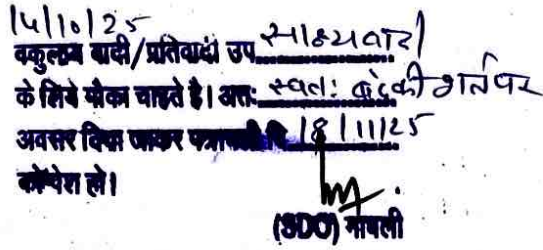 14/10/25
वकुलाय वादी/प्रतिवादी उप साक्ष्यवादी
के लिये मौका चाहते है। अतः स्वतः बंद की शर्त पर
अवसर दिया जाकर पत्रावली दि 18/11/25
को पेश हो।
(SDO) मावली